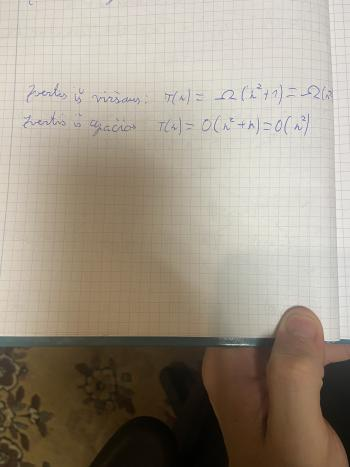 Įvertis iš viršaus: T(n) = Ω(n²+1) = Ω(n
Įvertis iš apačios T(n) = O(n²+n) = O(n²)